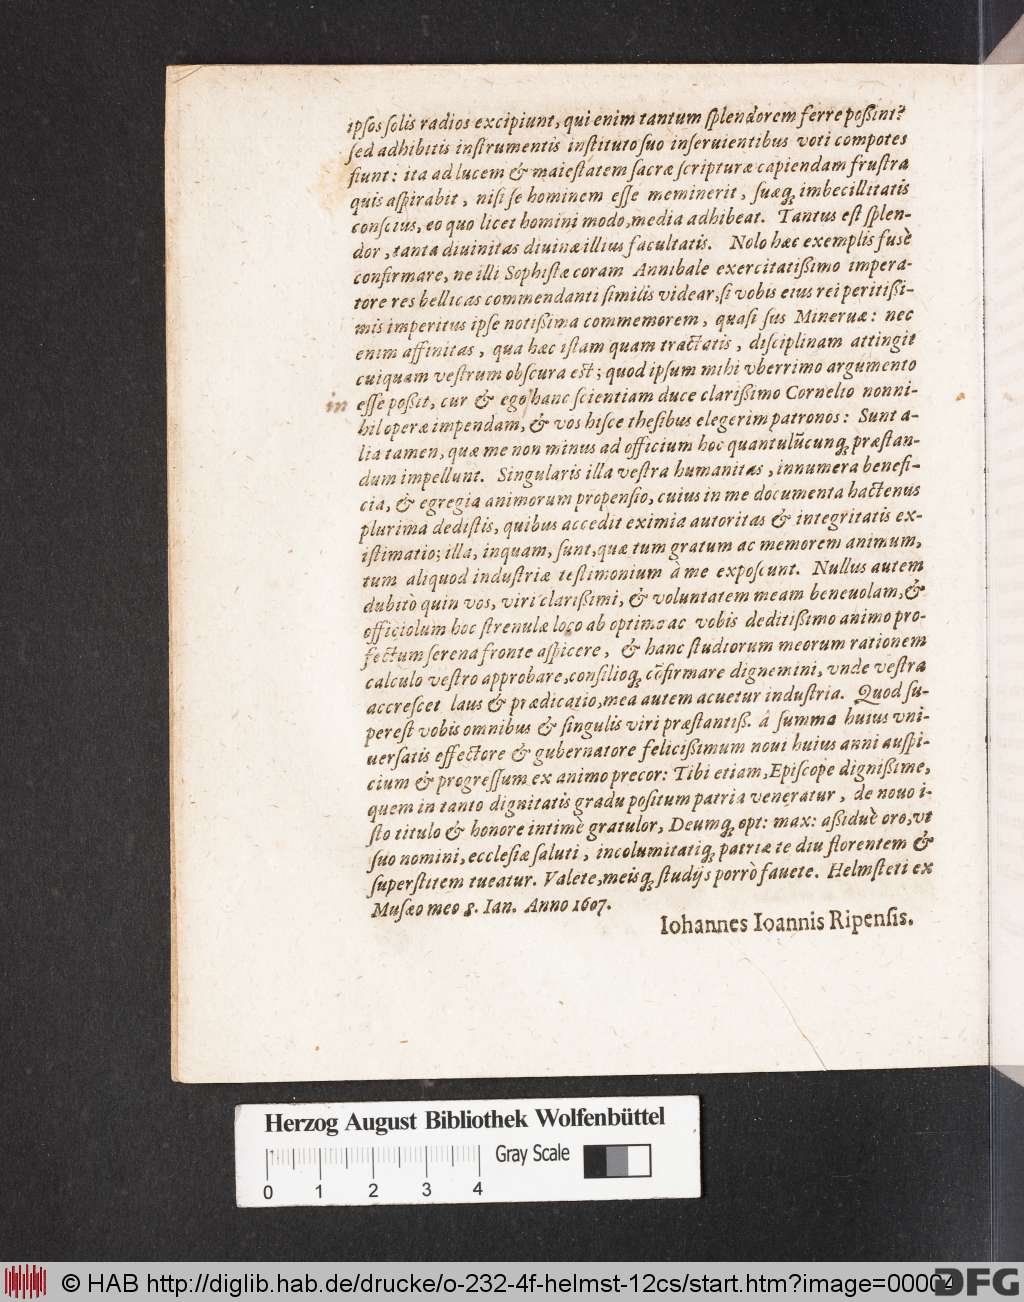 ipsos solis radios excipiunt, qui enim tantum splendorem ferre poßint?
sed adhibitis instrumentis instituto suo inseruientibus voti compotes
fiunt: ita ad lucem & maiestatem sacræ scripturæ capiendam frustra
quis aspirabit, nisi se hominem esse meminerit, suæq; imbecillitatis
conscius, eo quo licet homini modo, media adhibeat. Tantus est splen-
dor, tanta diuinitas diuinæ illius facultatis. Nolo hæc exemplis fusè
confirmare, ne illi Sophistæ coram Annibale exercitatißimo impera-
tore res bellicas commendanti similis videar, si vobis eius rei peritißi-
mis imperitus ipse notißima commemorem, quasi sus Mineruæ: nec
enim affinitas, qua hæc istam quam tractatis, disciplinam attingit
cuiquam vestrum obscura est; quod ipsum mihi vberrimo argumento
in esse poßit, cur & ego hanc scientiam duce clarißimo Cornelio nonni-
hil operæ impendam, & vos hisce thesibus elegerim patronos: Sunt a-
lia tamen, quæ me non minus ad officium hoc quantulũcunq; præstan-
dum impellunt. Singularis illa vestra humanitas, innumera benefi-
cia, & egregia animorum propensio, cuius in me documenta hactenus
plurima dedistis, quibus accedit eximia autoritas & integritatis ex-
istimatio; illa, inquam, sunt, quæ tum gratum ac memorem animum,
tum aliquod industriæ testimonium à me exposcunt. Nullus autem
dubitò quin vos, viri clarißimi, & voluntatem meam beneuolam, &
officiolum hoc strenulæ loco ab optimo ac vobis deditißimo animo pro-
fectum serena fronte aspicere, & hanc studiorum meorum rationem
calculo vestro approbare, consilioq; cõfirmare dignemini, vnde vestra
accrescet laus & prædicatio, mea autem acuetur industria. Quod su-
perest vobis omnibus & singulis viri præstantiß. â summo huius vni-
uersatis effectore & gubernatore felicißimum noui huius anni auspi-
cium & progressum ex animo precor: Tibi etiam, Episcope dignißime,
quem in tanto dignitatis gradu positum patria veneratur, de nouo i-
sto titulo & honore intimè gratulor, Deumq; opt: max: aßiduè oro, vt
suo nomini, ecclesiæ saluti, incolumitatiq; patriæ te diu florentem &
superstitem tueatur. Valete, meisq; studijs porrò fauete. Helmsteti ex
Musæo meo 8. Ian. Anno 1607.
Iohannes Ioannis Ripensis.
Herzog August Bibliothek Wolfenbüttel
Gray Scale
0 1 2 3 4
© HAB http://diglib.hab.de/drucke/o-232-4f-helmst-12cs/start.htm?image=00004
DFG